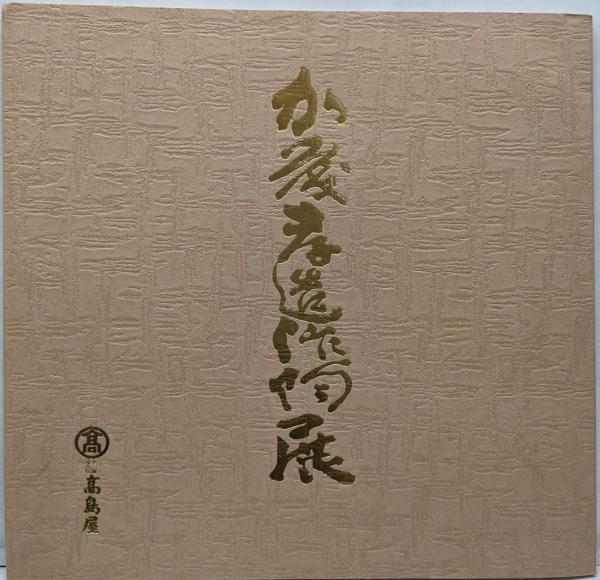 加藤孝造作陶展
髙
髙島屋